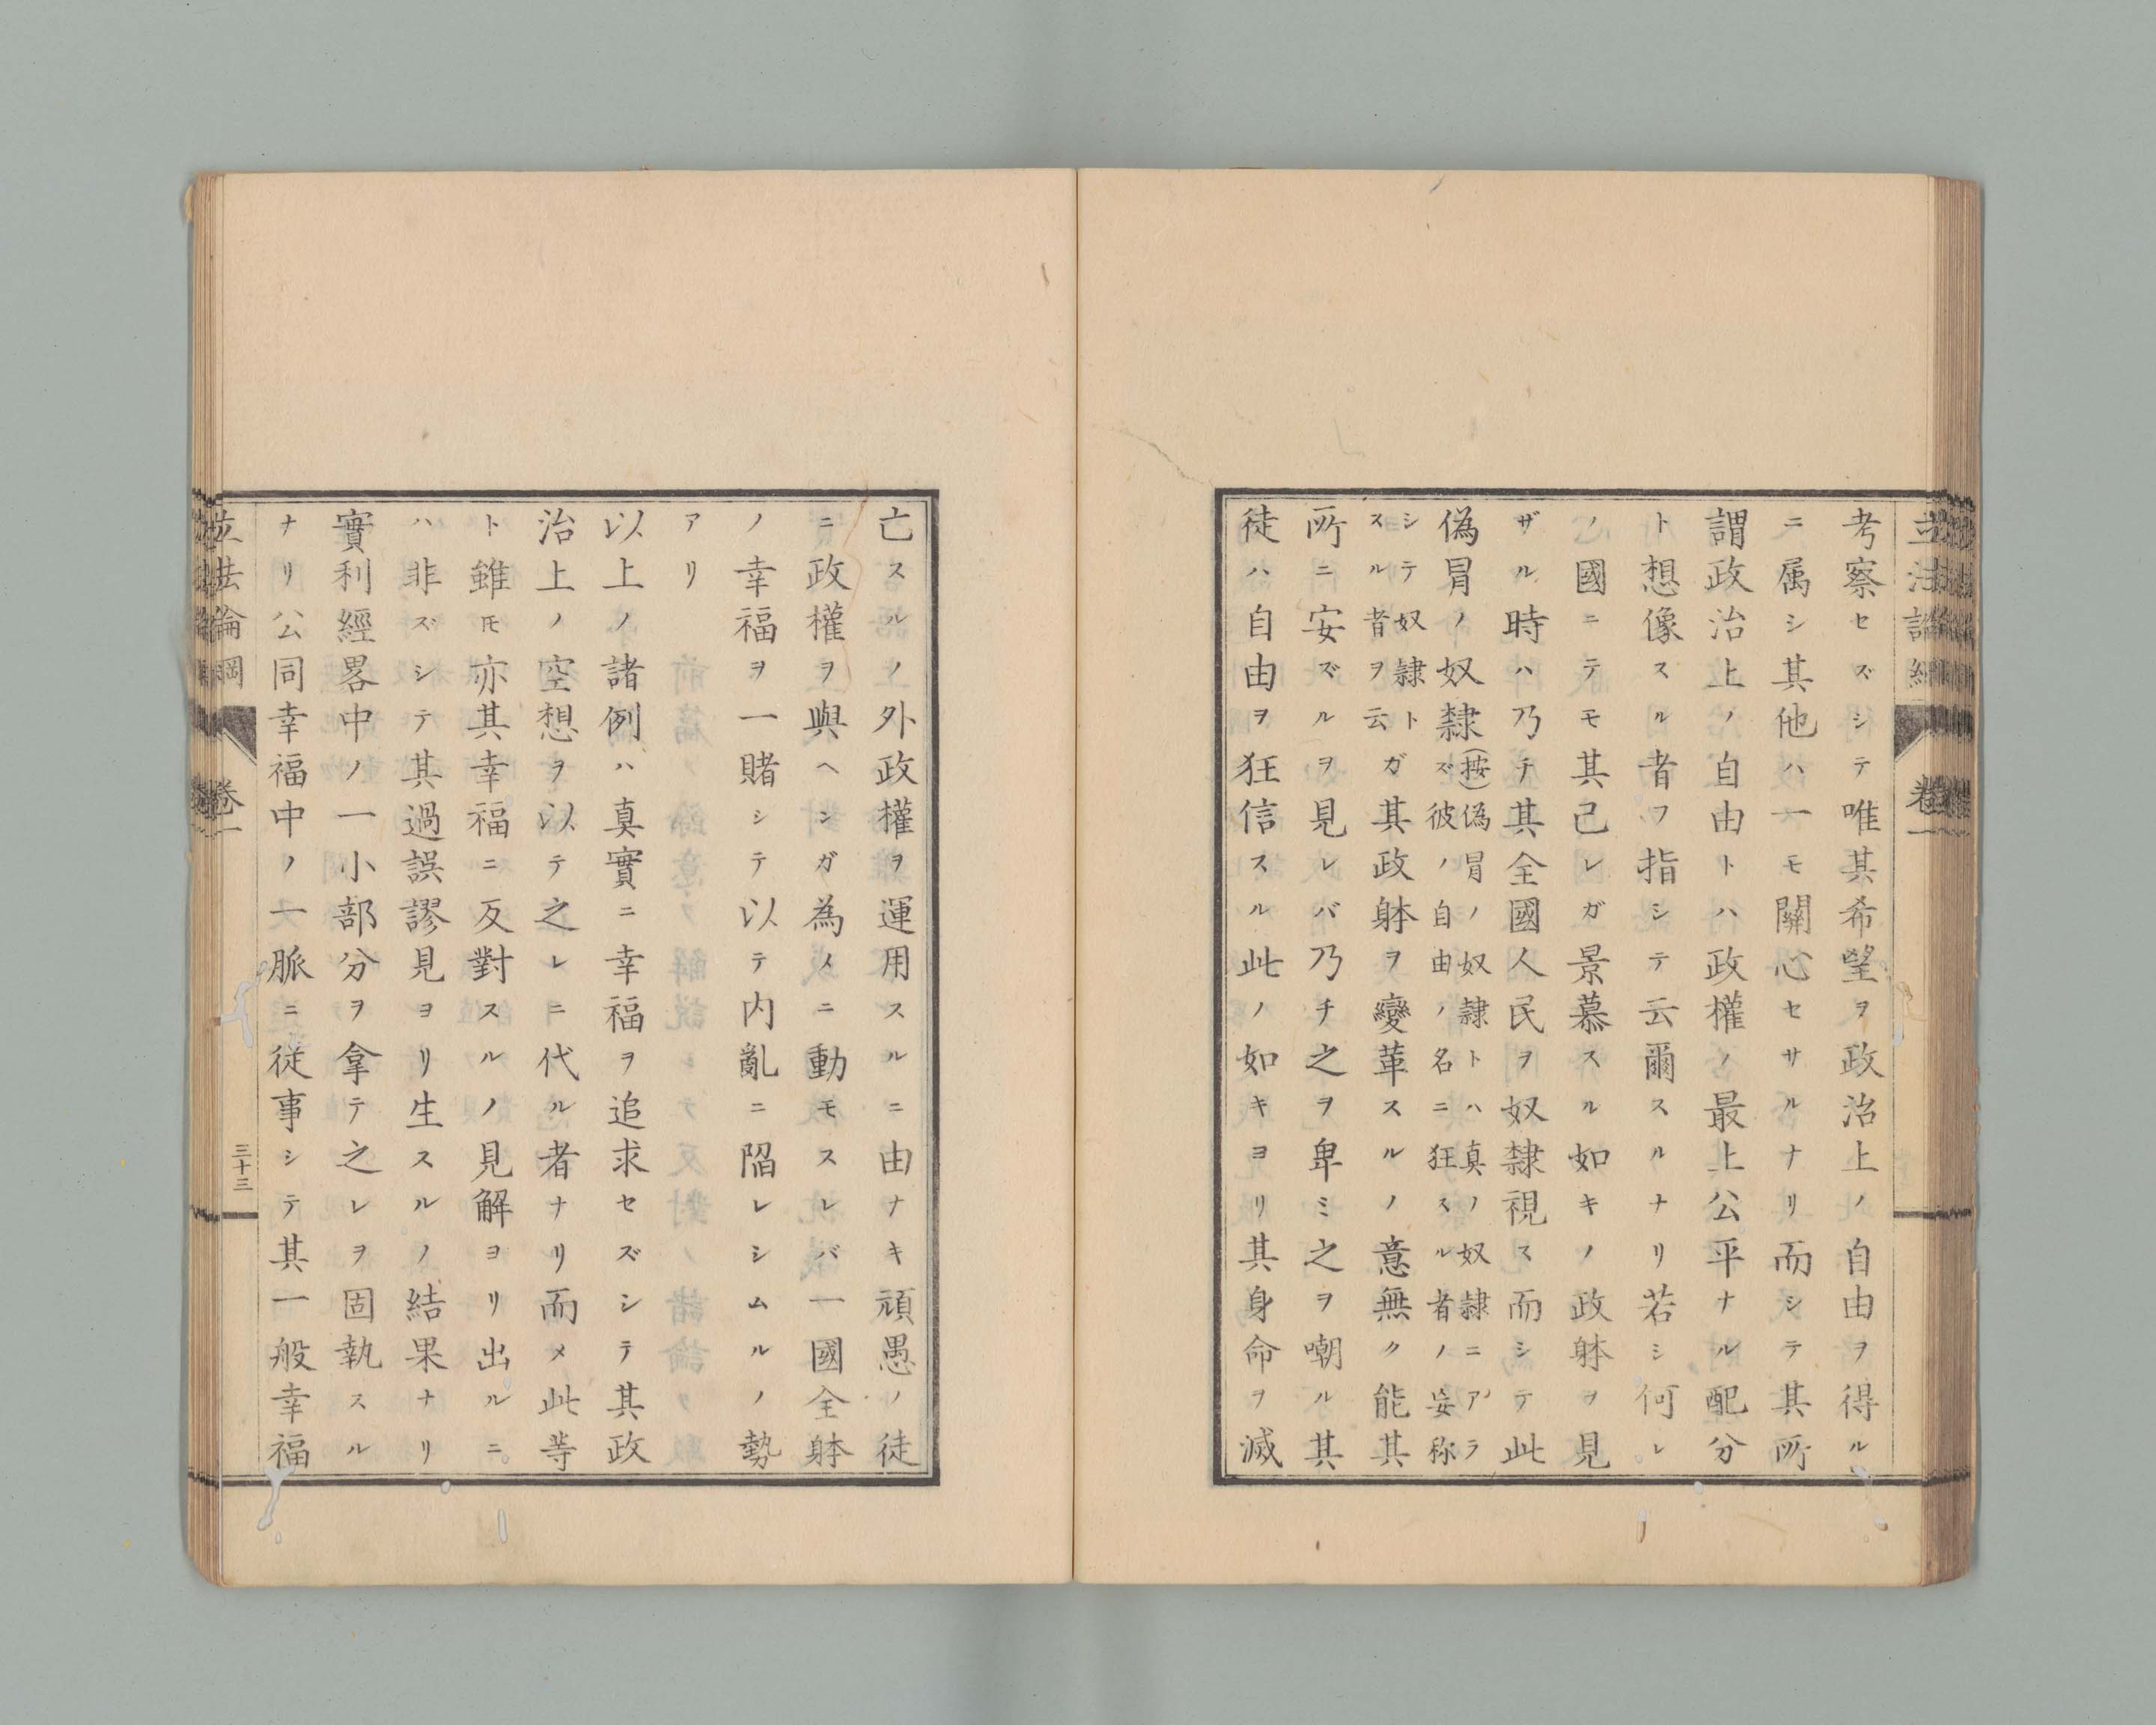 考察セズシテ唯其希望ヲ政治上ノ自由ヲ得ル
ニ属シ其他ハ一モ關心セサルナリ而シテ其所
謂政治上ノ自由トハ政權ノ最上公平ナル配分
ト想像スル者ヲ指シテ云爾スルナリ若シ何レ
ノ國ニテモ其己レガ景慕スル如キノ政躰ヲ見
ザル時ハ乃チ其全國人民ヲ奴隷視ス而シテ此
偽冐ノ奴隷(按)偽冐ノ奴隷トハ真ノ奴隷ニアラ
ズ彼ノ自由ノ名ニ狂スル者ノ妄称
シテ奴隷ト
スル者ヲ云ガ其政躰ヲ變革スルノ意無ク能其
所ニ安ズルヲ見レバ乃チ之ヲ卑ミ之ヲ嘲ル其
徒ハ自由ヲ狂信スル此ノ如キヨリ其身命ヲ滅
亡スルノ外政權ヲ運用スルニ由ナキ頑愚ノ徒
ニ政權ヲ與ヘシガ為メニ動モスレバ一國全躰
ノ幸福ヲ一賭シテ以テ内亂ニ陷レシムルノ勢
アリ
以上ノ諸例ハ真實ニ幸福ヲ追求セズシテ其政
治上ノ空想ヲ以テ之レニ代ル者ナリ而メ此等
ト雖𪜈亦其幸福ニ反對スルノ見解ヨリ出ルニ。
ハ非ズシテ其過誤謬見ヨリ生スルノ結果ナリ
實利經畧中ノ一小部分ヲ拿テ之レヲ固執スル
ナリ公同幸福中ノ一脈ニ従事シテ其一般幸福
立法論綱 卷一 三十三